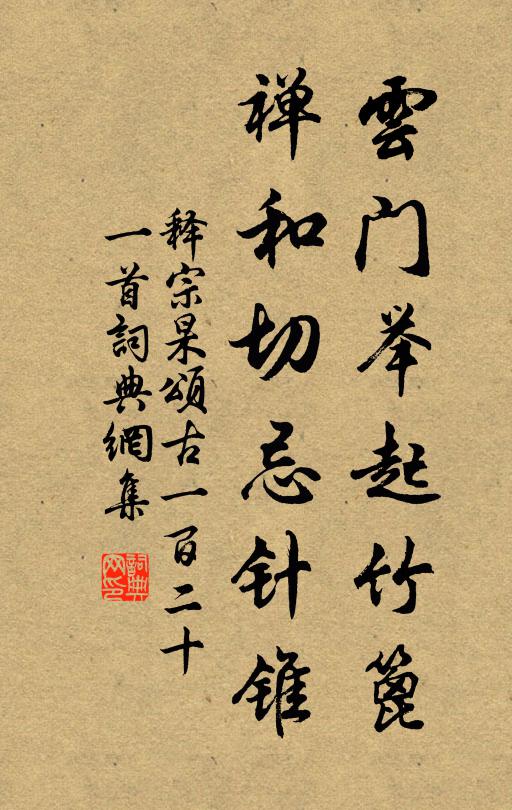 雲门举起竹篦
禅和切忌针锥
释宗杲頌古一百二十
一首詞典網集
詞典网印